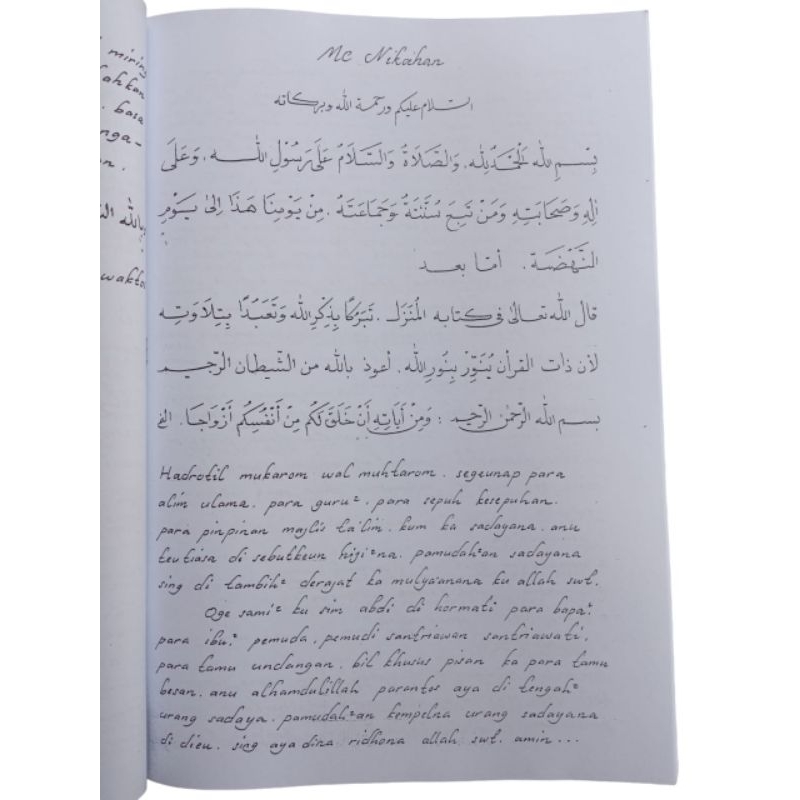 miring
ahkan
basa
nga-
n.
بالله
wakto
Mc Nikahan
السلام عليكم ورحمة الله وبركاته
بِسْمِ الله اَلْحَمْدُ لِلّه. وَالصَّلَاةُ وَالسَّلَامُ عَلَى رَسُوْلِ اللّٰه. وَعَلَى
اٰلِهِ وَصَحَابَتِهِ وَمَنْ تَبِعَ سُنَّتَهُ وَجَمَاعَتَهُ. مِنْ يَوْمِنَا هٰذَا اِلىٰ يَوْمِ
النَّهْضَة. أمّا بعد
قال الله تعالىٰ فى كتابه المُنَزَّل. تَبَرُّكًا بِذِكْرِ الله وَتَعَبُّدًا بِتِلَاوَتِه
لأن ذات القرأن يُنَوِّرُ بِنُورِ الله. أعوذ بالله من الشّيطان الرّجيم
بسم الله الرّحمٰن الرّحيم : وَمِنْ أٰيَاتِهِ أَنْ خَلَقَ لَكُم مِنْ أَنْفُسِكُم أَزْوَاجًا. الخ
Hadrotil mukarom wal muhtarom. segeunap para
alim ulama. para guru². para sepuh kesepuhan.
para pinpinan majlis ta'lim. kum ka sadayana. anu
teu tiasa di sebutkeun hiji²na. pamudah²an sadayana
sing di tambih² derajat ka mulya'anana ku allah swt.
Oge sami² ku sim abdi di hormati para bapa².
para ibu². pemuda, pemudi santriawan santriawati.
para tamu undangan. bil khusus pisan ka para tamu
besan. anu alhamdulillah parantos aya di tengah²
urang sadaya. pamudah²an kempelna urang sadayana
di dieu. sing aya dina ridhona allah swt. amin...